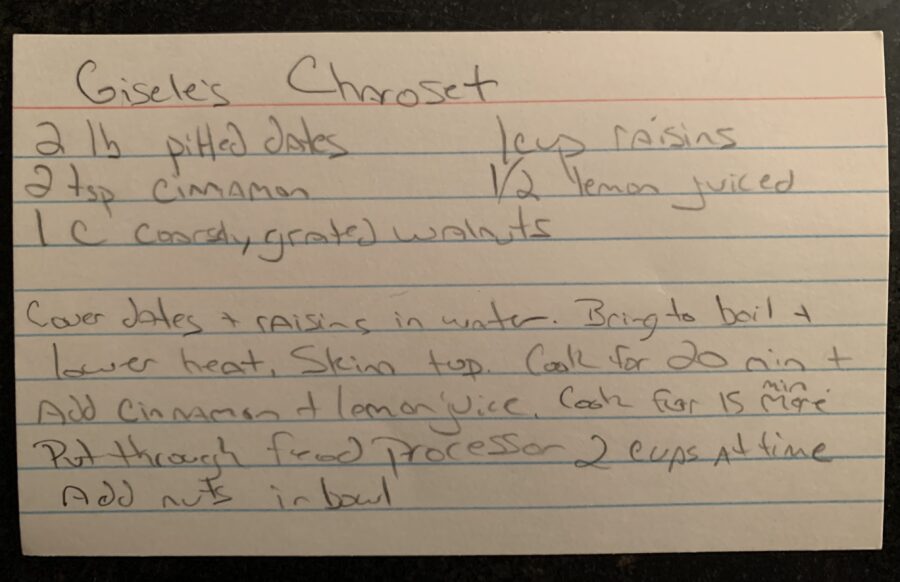 Gisele's Charoset
2 lb pitted dates 1 cup raisins
2 tsp cinnamon 1/2 lemon juiced
1 C coarsely grated walnuts
Cover dates + raisins in water. Bring to boil +
lower heat. Skim top. Cook for 20 min +
Add cinnamon + lemon juice. Cook for 15 min more
Put through food processor 2 cups at time
Add nuts in bowl